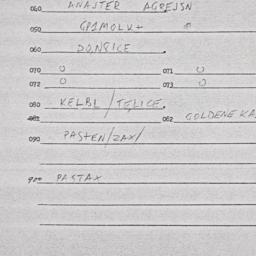 040 ANASTER AGREJSN
050 GPIMOLV+
060 DO,NSICE .
070 O 071 O
072 O 073 O
080 KELBL / TELICE.
081 082 GOLDENE KA
090 PASTEN/ZAX/
900 PASTAX